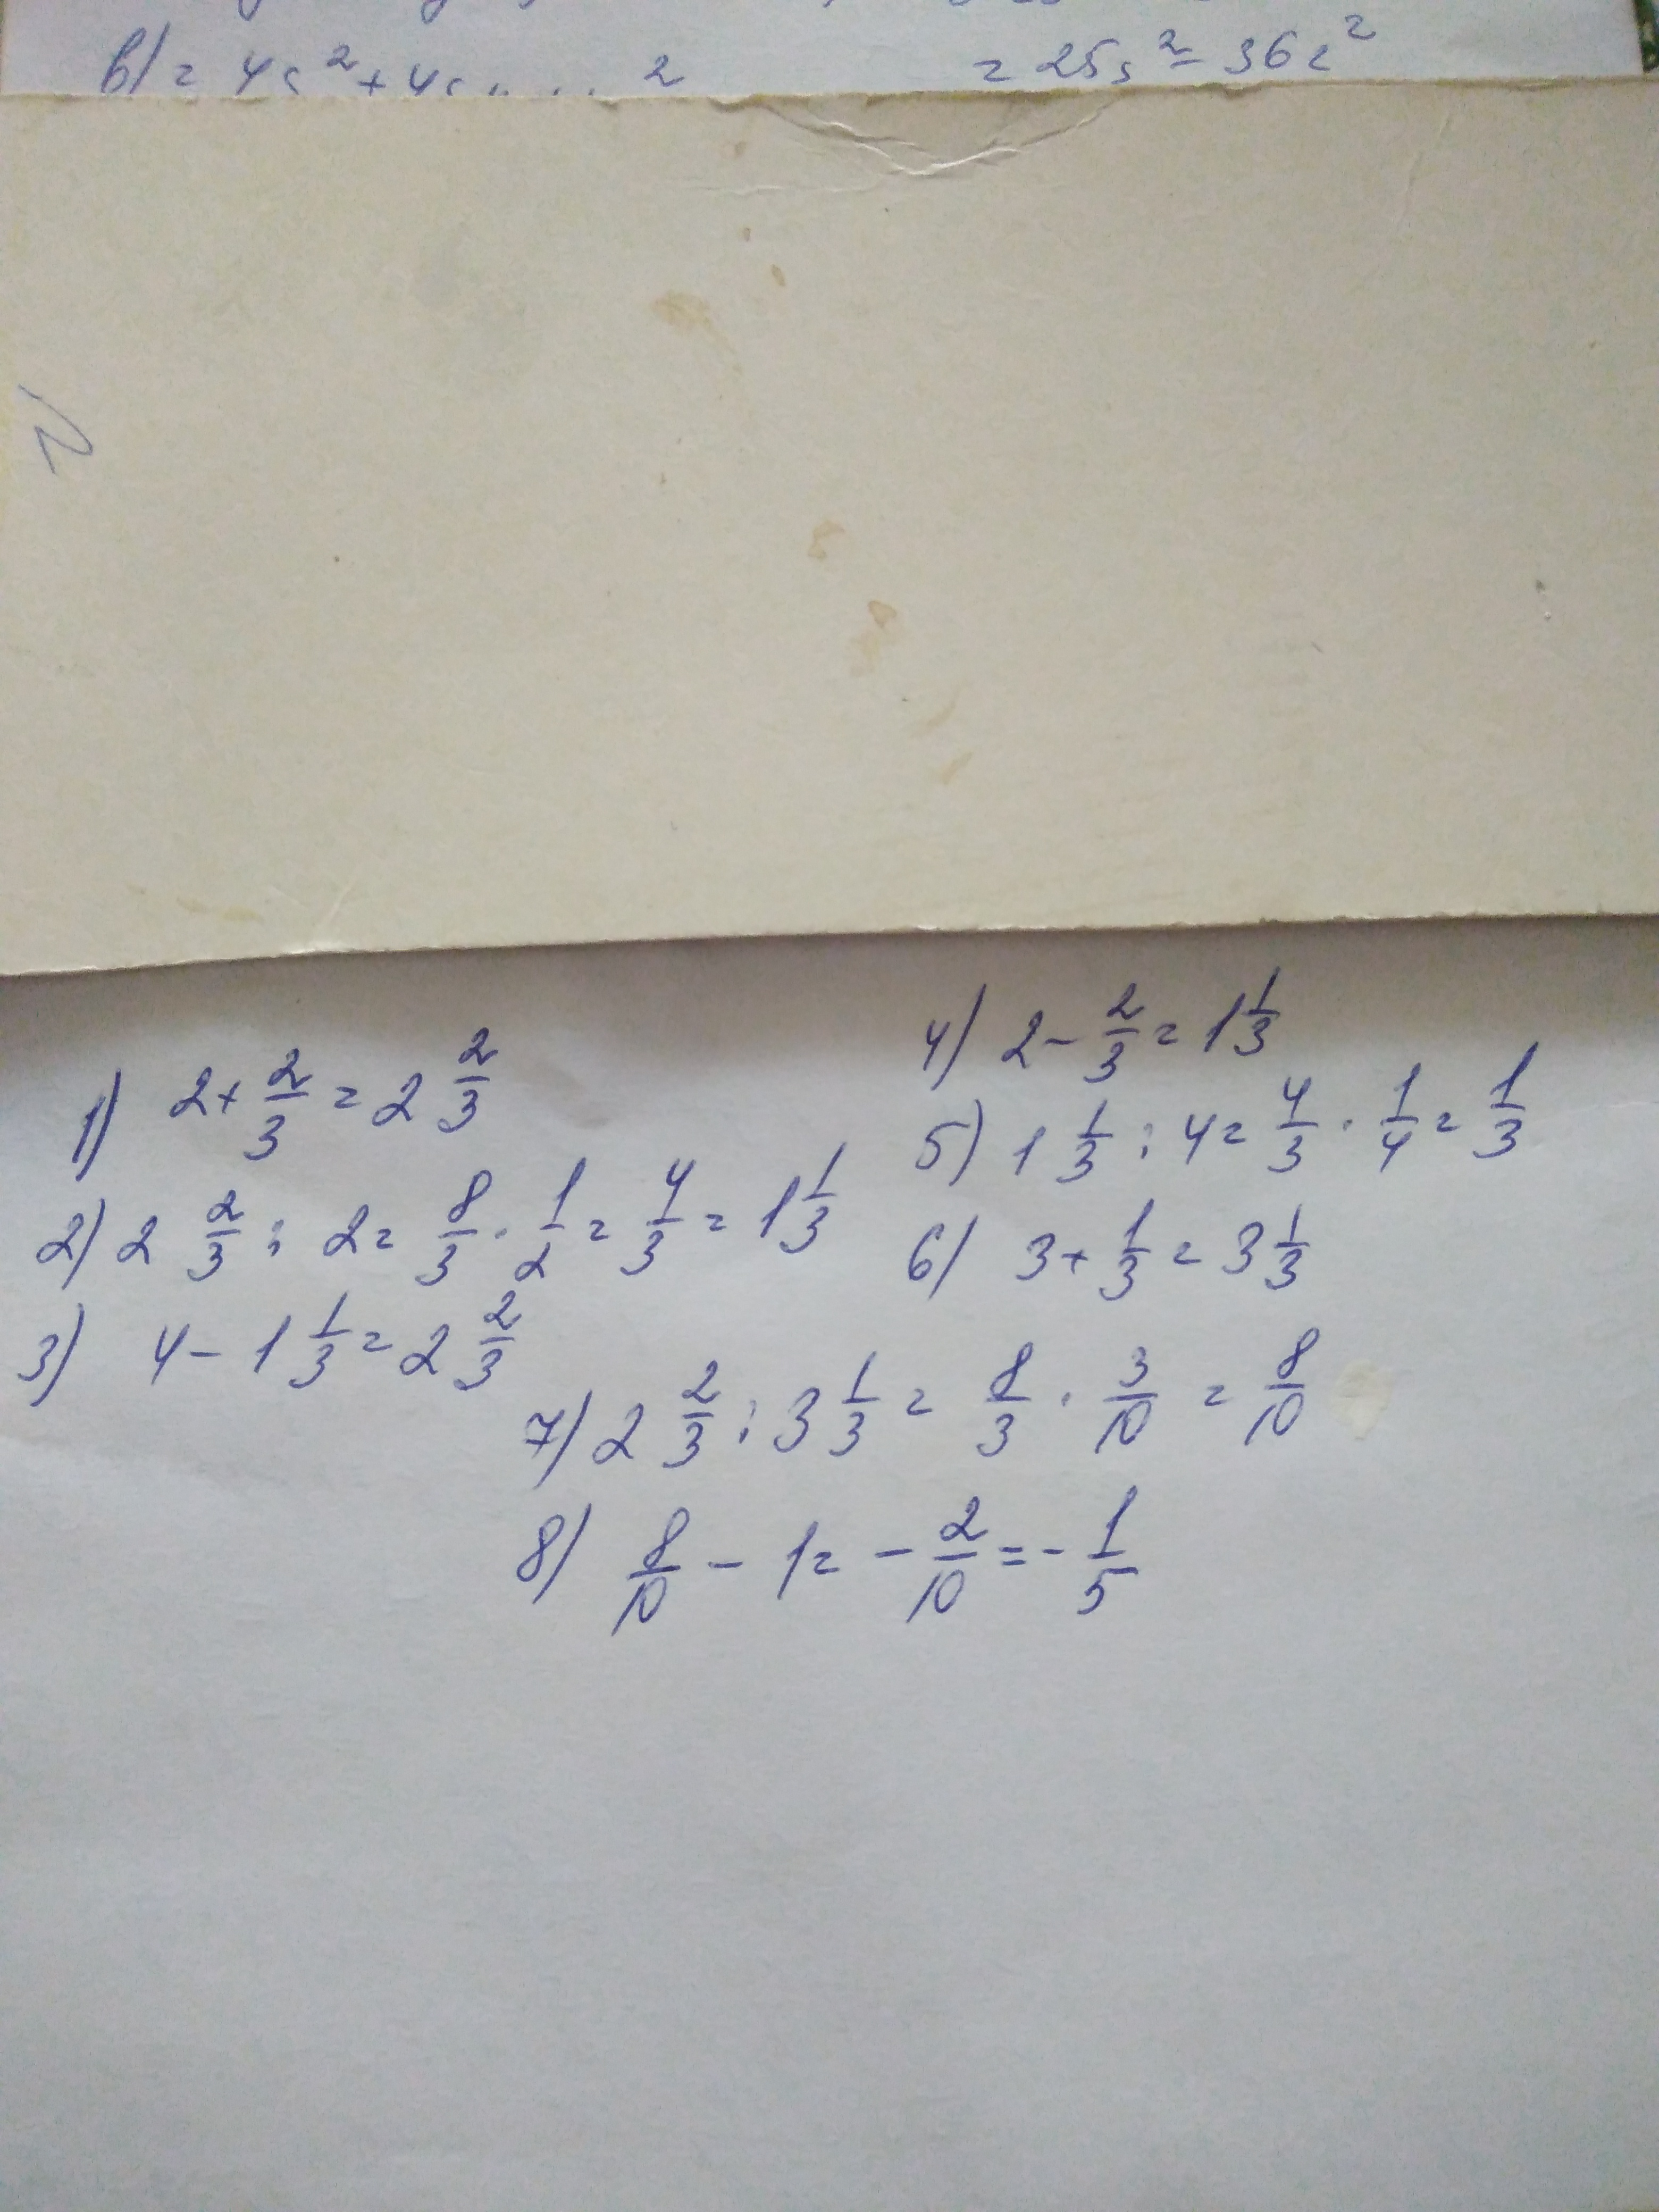 в) = 4c² + 4c 2
= 25 ² - 36c²
1) 2 + 2/3 = 2 2/3
2) 2 2/3 : 2 = 8/3 · 1/2 = 4/3 = 1 1/3
3) 4 - 1 1/3 = 2 2/3
4) 2 - 2/3 = 1 1/3
5) 1 1/3 : 4 = 4/3 · 1/4 = 1/3
6) 3 + 1/3 = 3 1/3
7) 2 2/3 : 3 1/3 = 8/3 · 3/10 = 8/10
8) 8/10 - 1 = - 2/10 = - 1/5